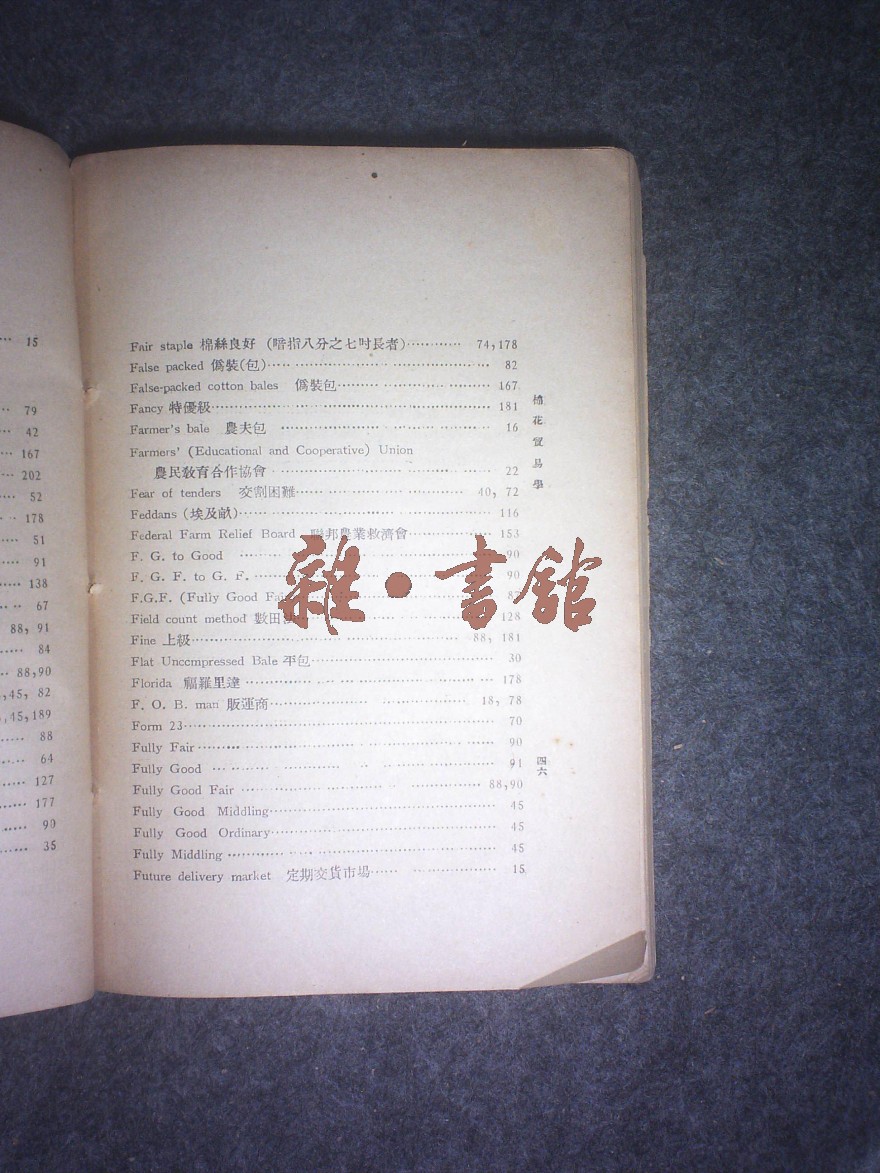 15
79
42
167
202
52
178
51
91
138
67
88, 91
84
88,90
,45, 82
,45,189
88
64
127
177
90
35
Fair staple 棉絲良好 (暗指八分之七吋長者)············ 74,178
False packed 僞裝(包)············ 82
False-packed cotton bales 僞裝包············ 167
Fancy 特優級············ 181
Farmer's bale 農夫包 ············ 16
Farmers' (Educational and Cooperative) Union
農民教育合作協會 ············ 22
Fear of tenders 交割困難············ 40, 72
Feddans (埃及畝)············ 116
Federal Farm Relief Board 聯邦農業救濟會············ 153
F. G. to Good ············ 90
F. G. F. to G. F.············ 90
F.G.F. (Fully Good Fai 87
Field count method 數田 128
Fine 上級············ 88, 181
Flat Unccmpressed Bale 平包············ 30
Florida 福羅里達············ 178
F. O. B. man 販運商············ 18, 78
Form 23············ 70
Fully Fair············ 90
Fully Good ············ 91
Fully Good Fair ············ 88,90
Fully Good Middling············ 45
Fully Good Ordinary············ 45
Fully Middling ············ 45
Future delivery market 定期交貨市場············ 15
棉花貿易學
四六
雜·書館